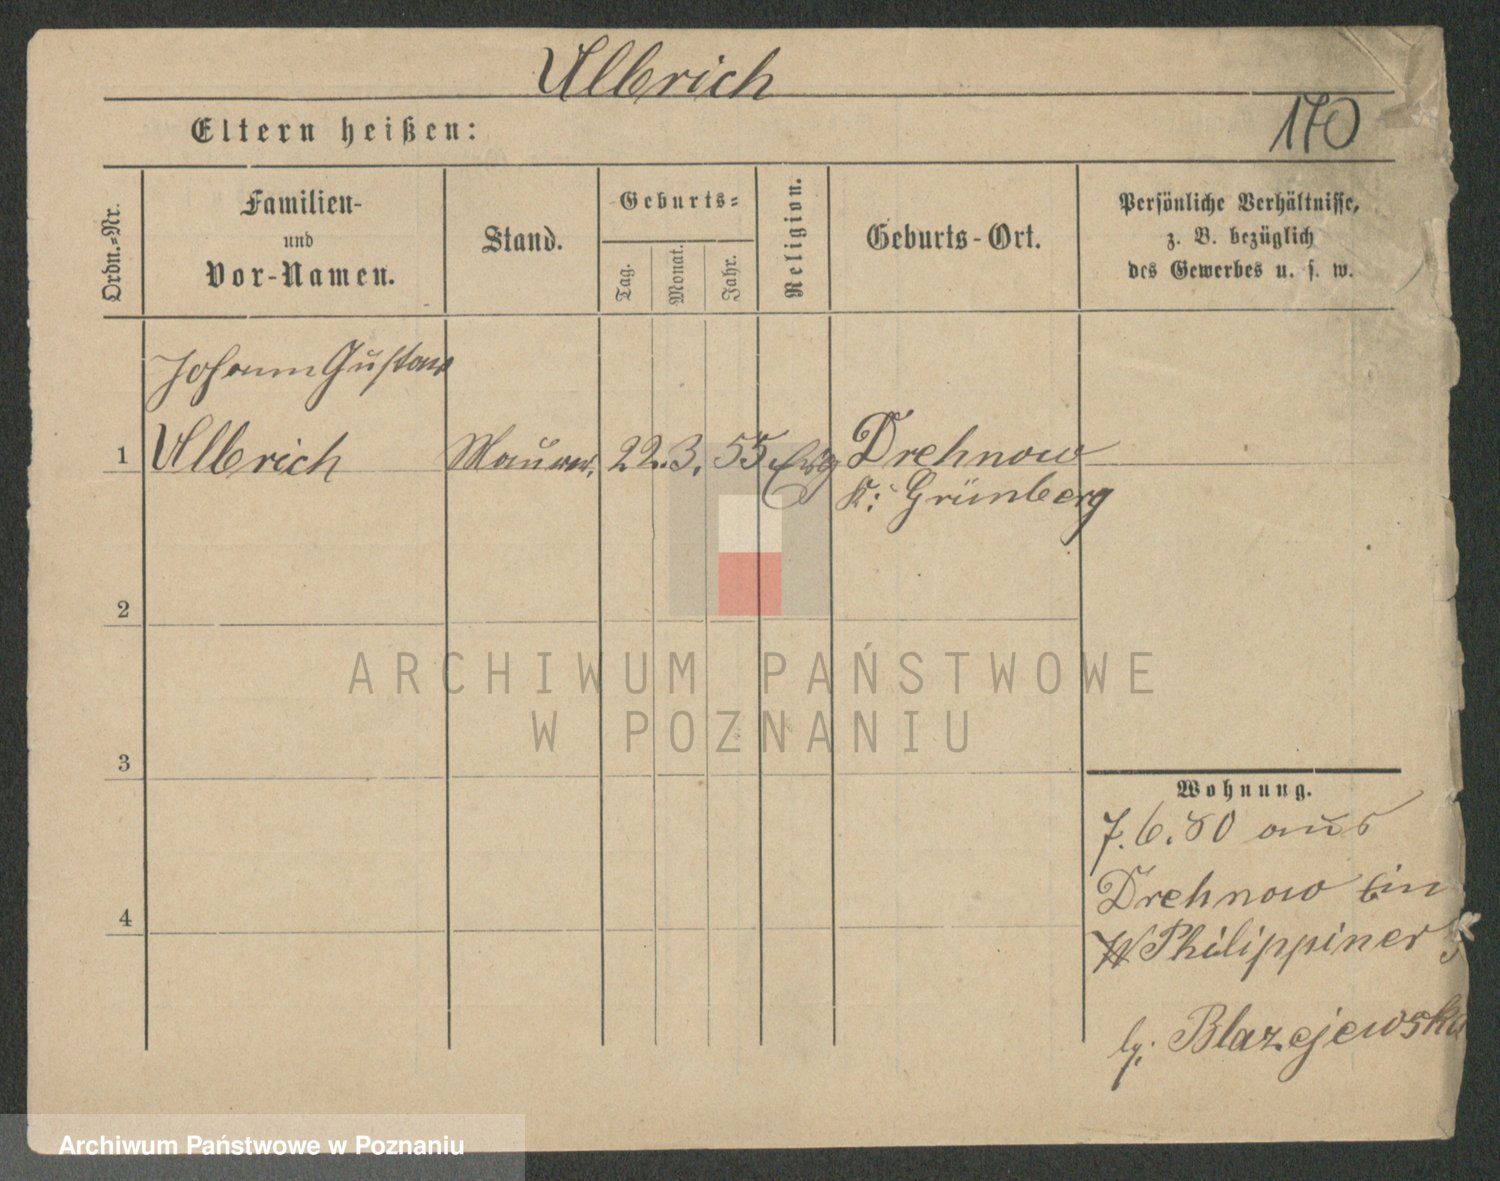 Ulbrich
Eltern heißen:
170
Ordn.=Nr.
Familien-
und
Vor-Namen.
Stand.
Geburts=
Tag.
Monat.
Jahr.
Religion.
Geburts-Ort.
Persönliche Verhältnisse,
z. B. bezüglich
des Gewerbes u. s. w.
Johann Gustav
1 Ulbrich Maurer. 22. 3. 55 Drehnow
K: Grünberg
2
3
4
ARCHIWUM PAŃSTWOWE
W POZNANIU
Wohnung.
7. 6. 80 aus
Drehnow
Philippiner
Blazejewska
Archiwum Państwowe w Poznaniu